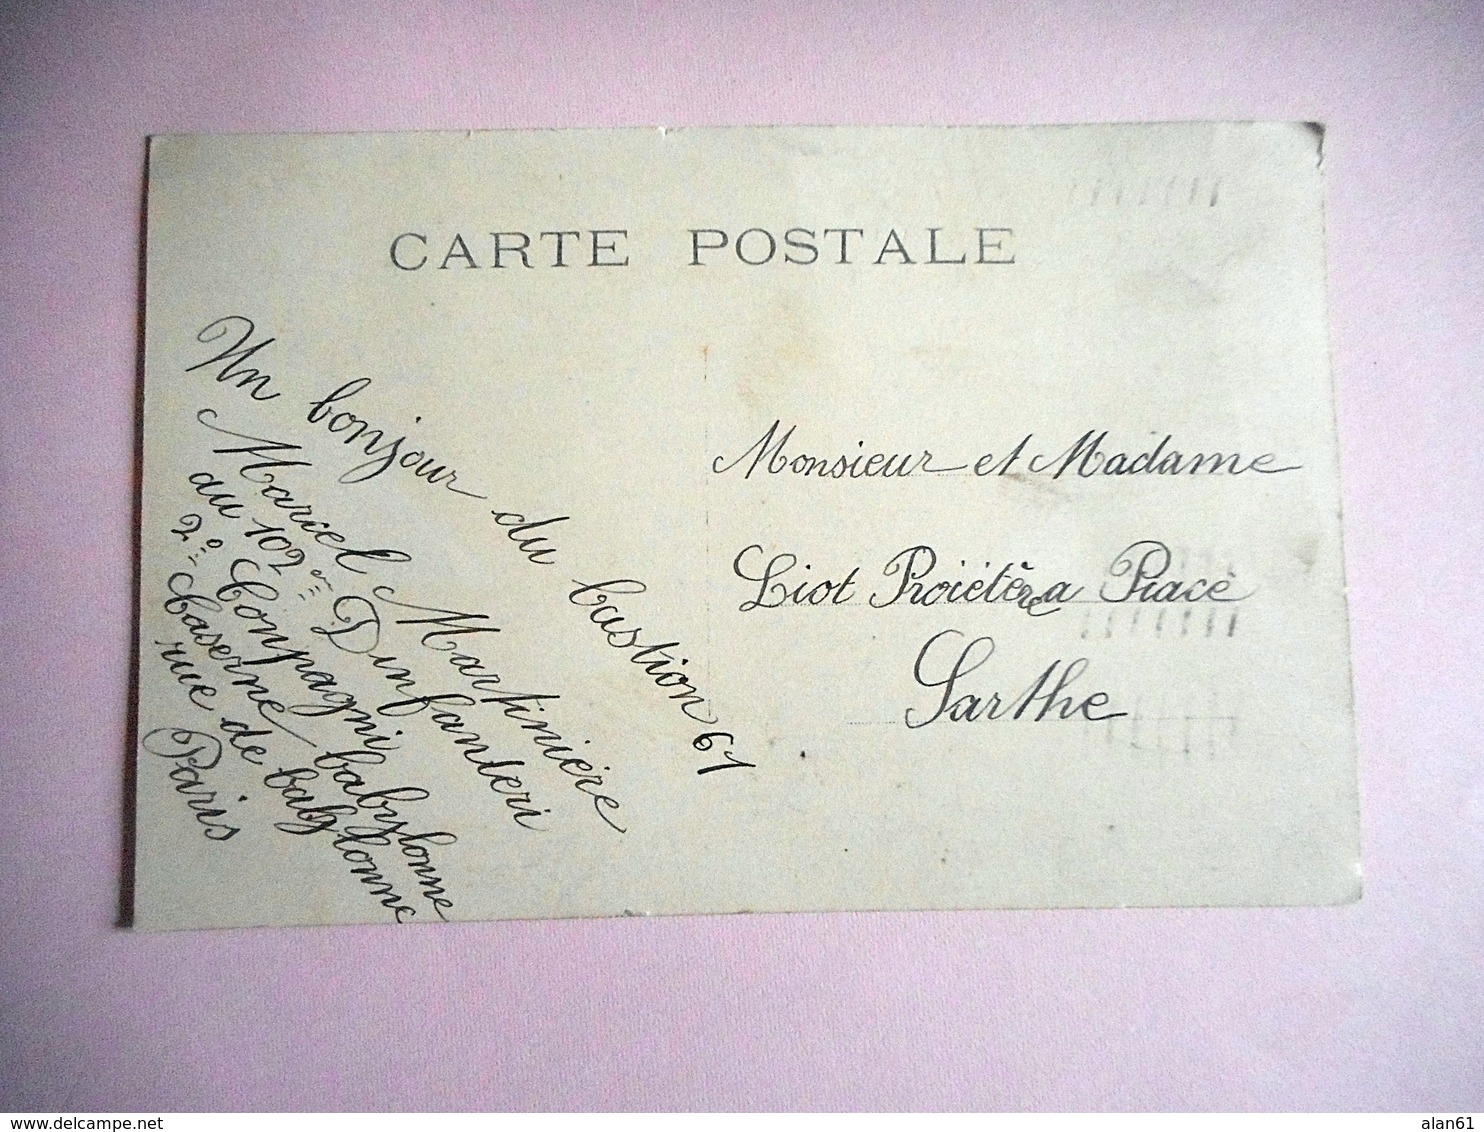 CARTE POSTALE
Un bonjour du bastion 61
Marcel Martinière
au 102ème D'infanteri
2° Conpagni
Chaserne babylonne
rue de babylonne
Paris
Monsieur et Madame
Liot Proiétère a Placé
Sarthe
delcampe.net
alan61